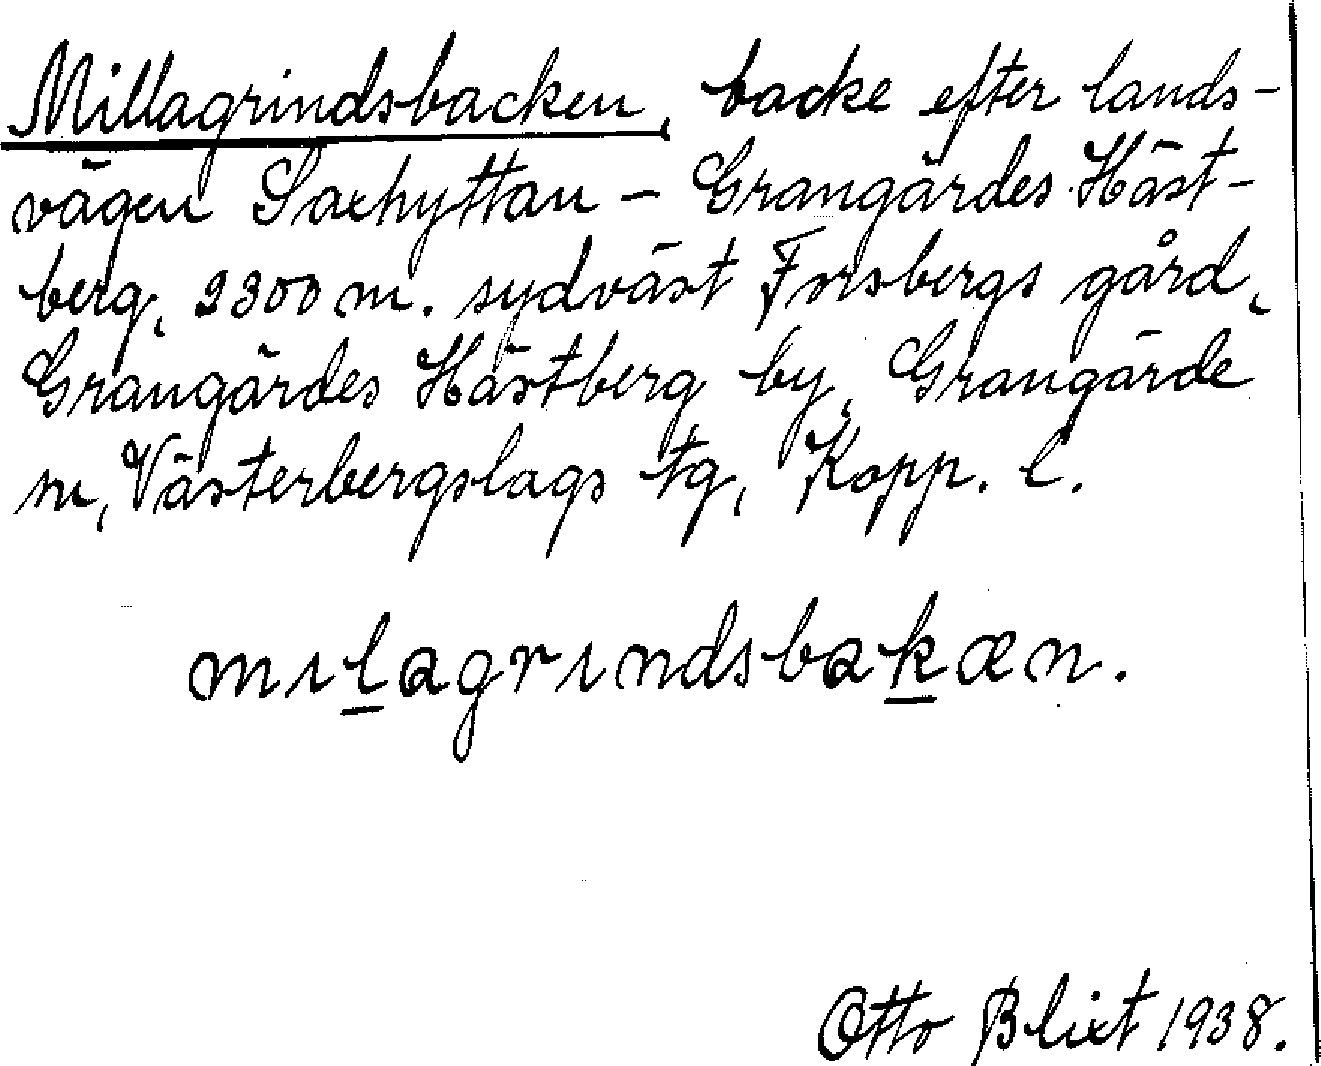 Millagrindsbacken, backe efter lands-
vägen Saxhyttan – Grangärdes Häst-
berg, 2300 m. sydväst Forsbergs gård,
Grangärdes Hästberg by, Grangärde
sn, Västerbergslags tg, Kopp. l.
mılagrındsbakæn.
Otto Blixt 1938.